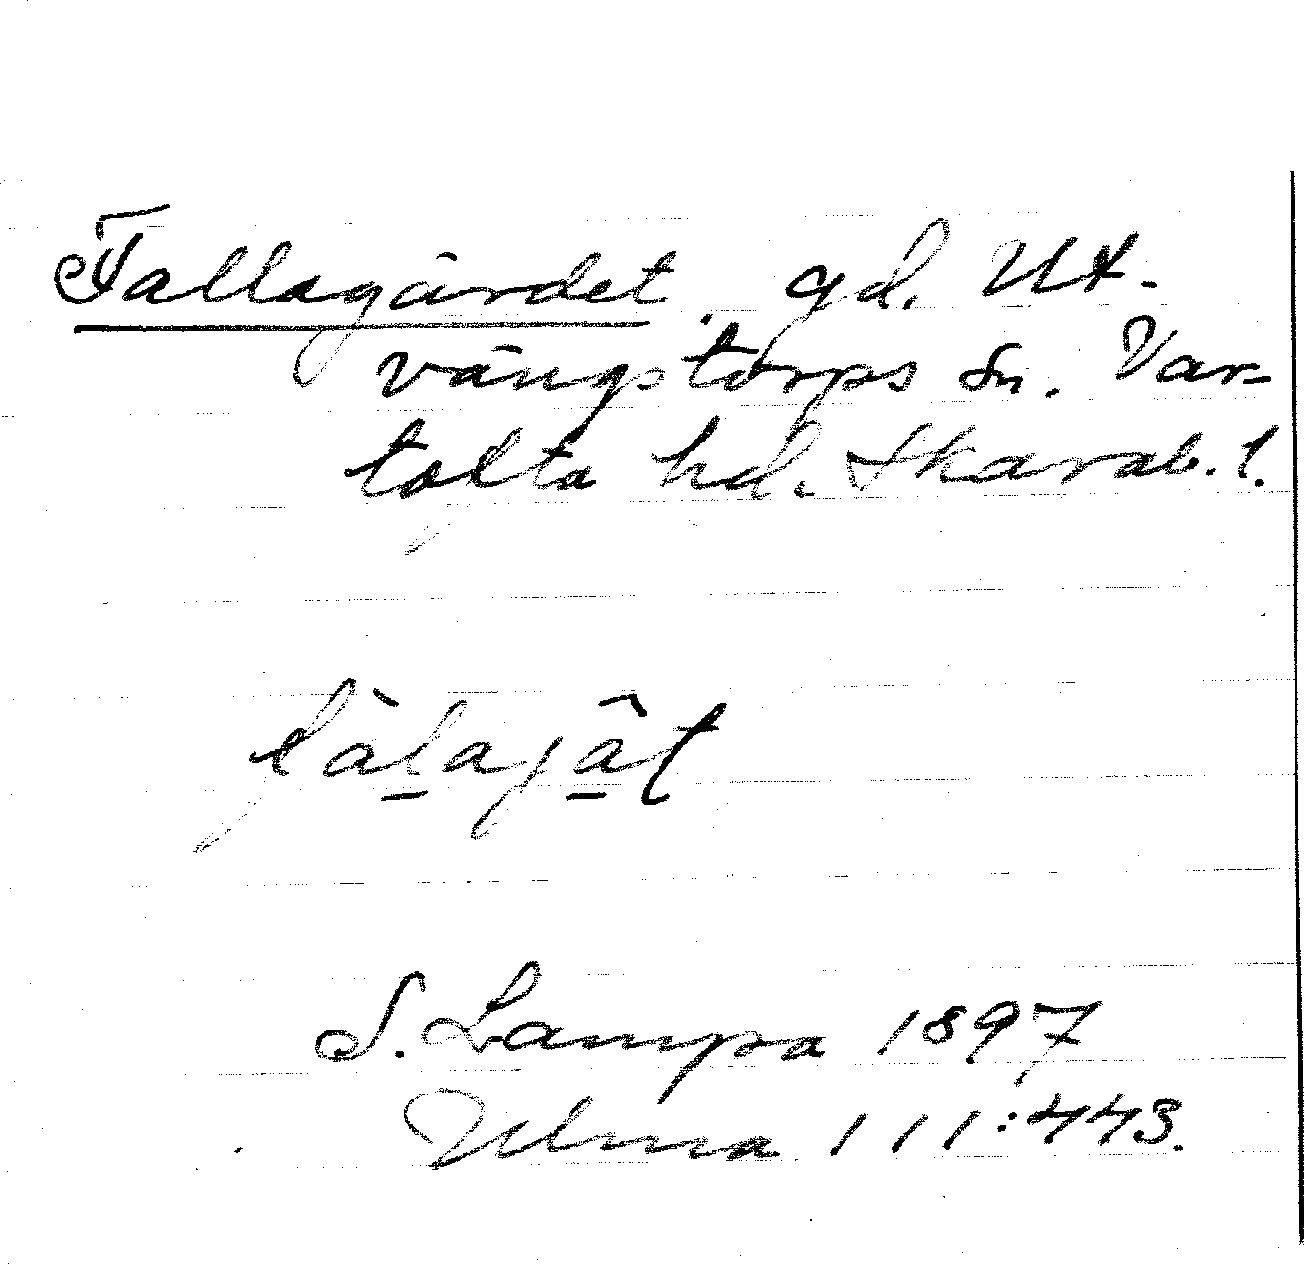 Fallagärdet. gd. Ut-
vängstorps sn. Var-
tofta hd. Skarab. l.
fàl̠ajâ̠t
S. Lampa 1897
Ulma 111:443.